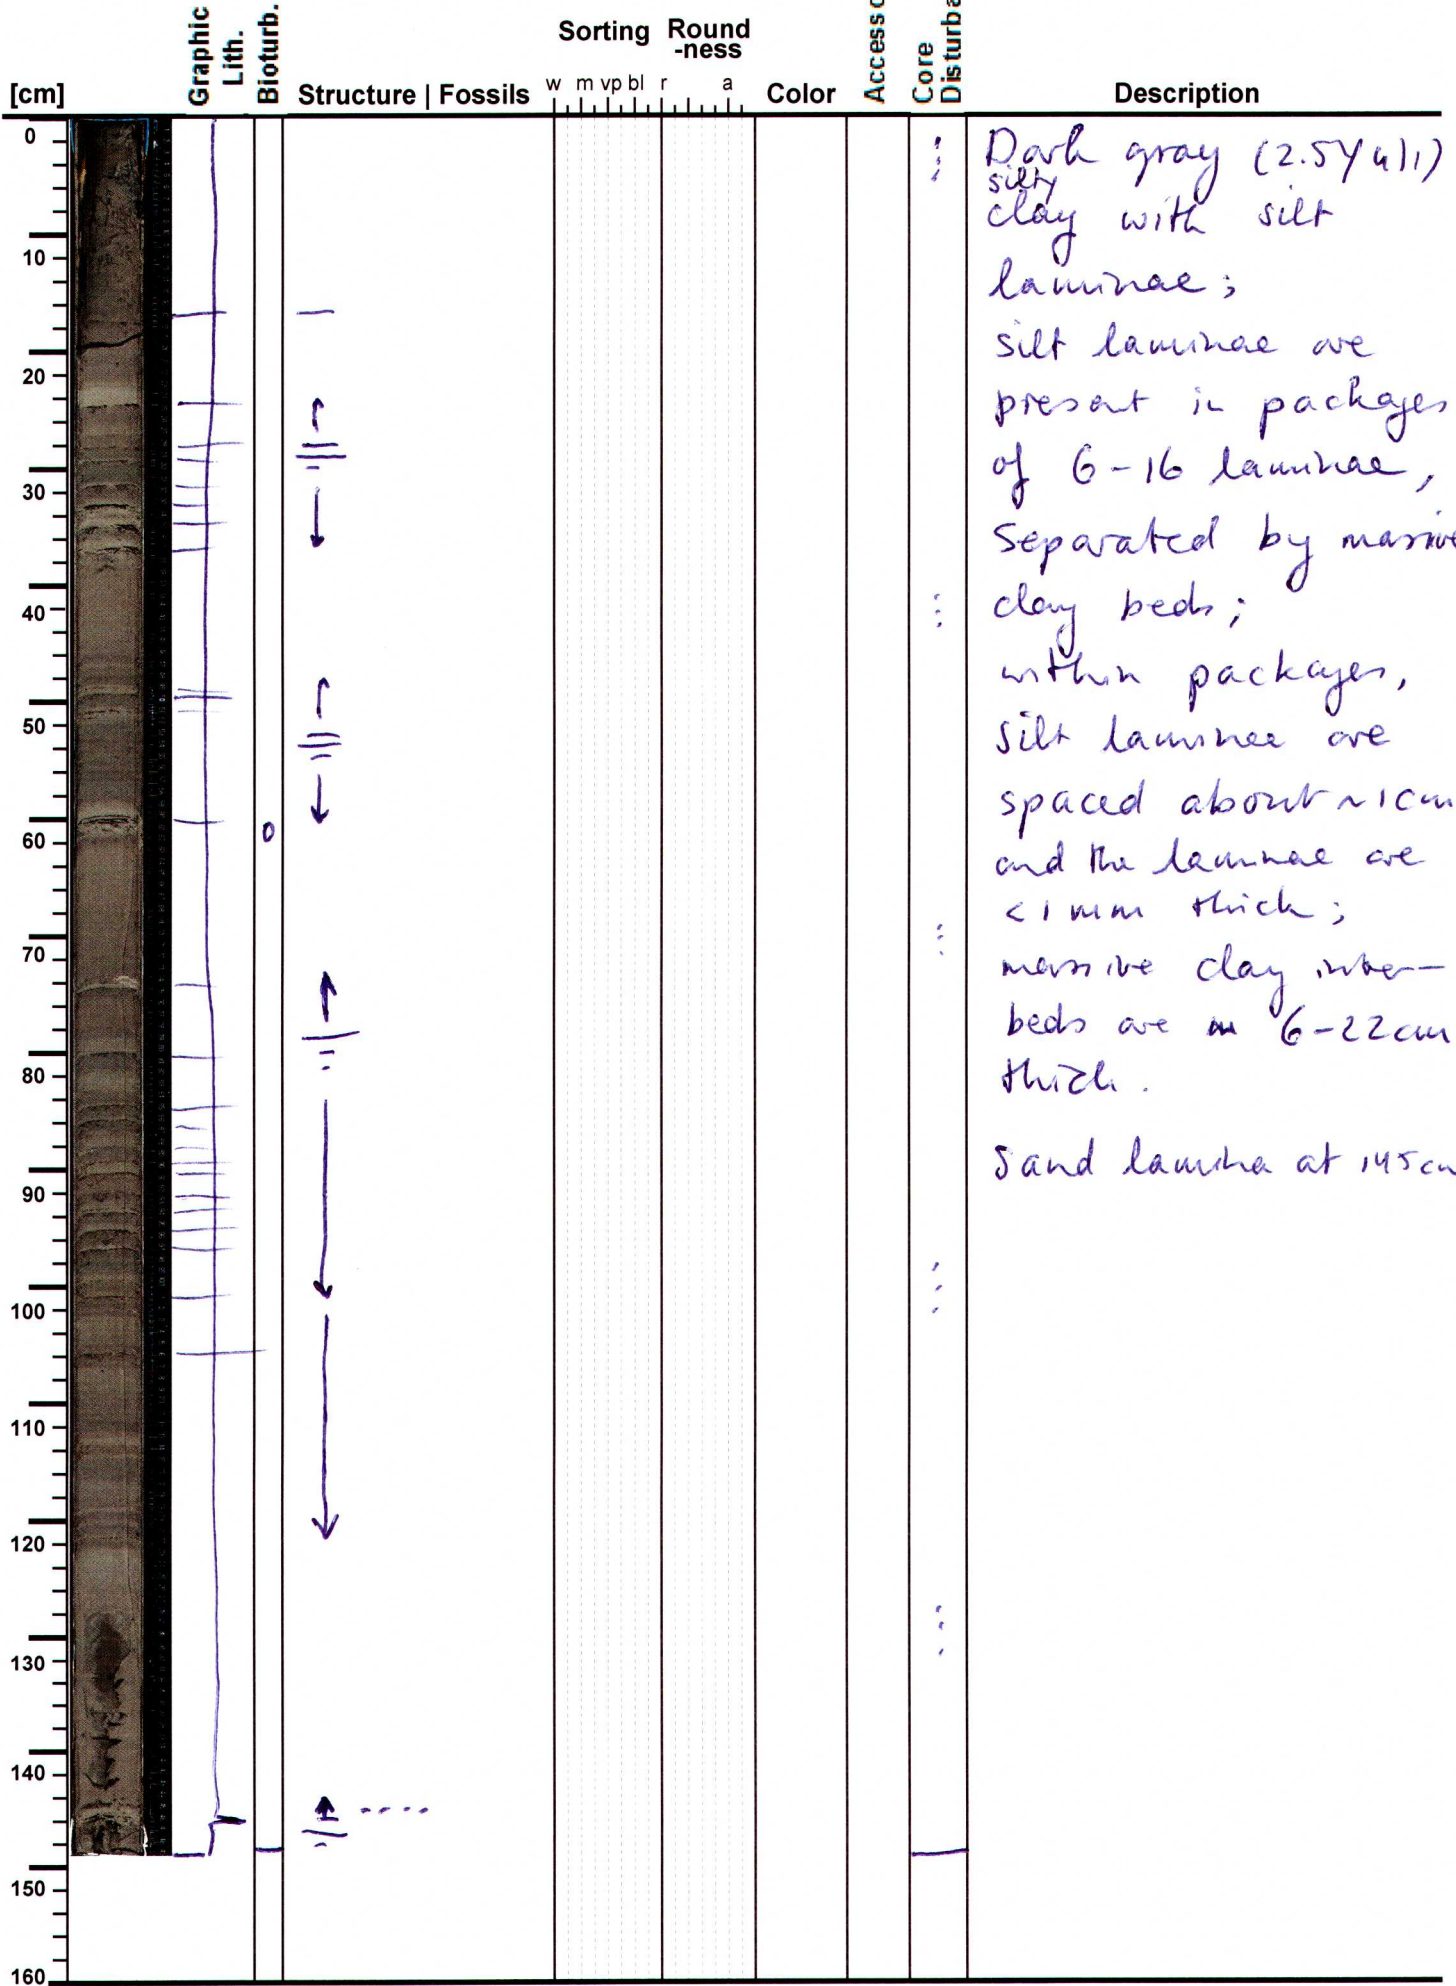 Sorting Round
-ness
[cm] Graphic Lith. Bioturb. Structure | Fossils w m vp bl r a Color Core Description
0
10
20
30
40
50
60
70
80
90
100
110
120
130
140
150
160
0
Dark gray (2.5Y 4/1)
silty
clay with silt
laminae;
silt laminae are
present in packages
of 6-16 laminae,
Separated by massive
clay beds;
within packages,
Silt laminae are
spaced about ~1cm
and the laminae are
<1mm thick;
massive clay inter-
beds are 6-22cm
thick.
Sand lamina at 145cm